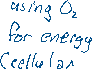 using O₂
for energy
(cellular